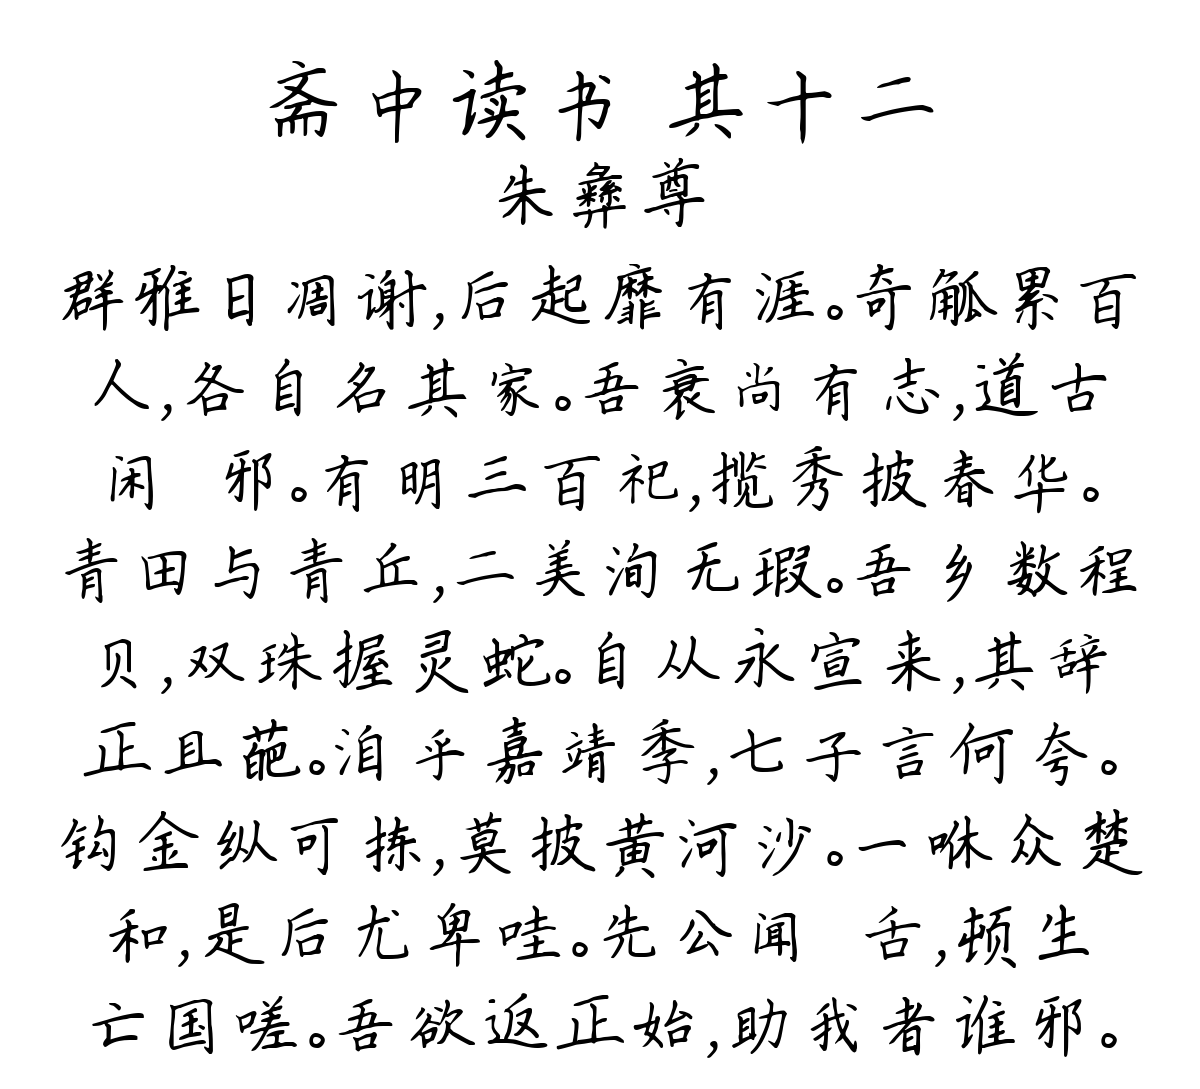 斋中读书 其十二
朱彝尊
群雅日凋谢,后起靡有涯。奇觚累百
人,各自名其家。吾衰尚有志,道古
闲 邪。有明三百祀,揽秀披春华。
青田与青丘,二美洵无瑕。吾乡数程
贝,双珠握灵蛇。自从永宣来,其辞
正且葩。洎乎嘉靖季,七子言何夸。
钩金纵可拣,莫披黄河沙。一咻众楚
和,是后尤卑哇。先公闻 舌,顿生
亡国嗟。吾欲返正始,助我者谁邪。